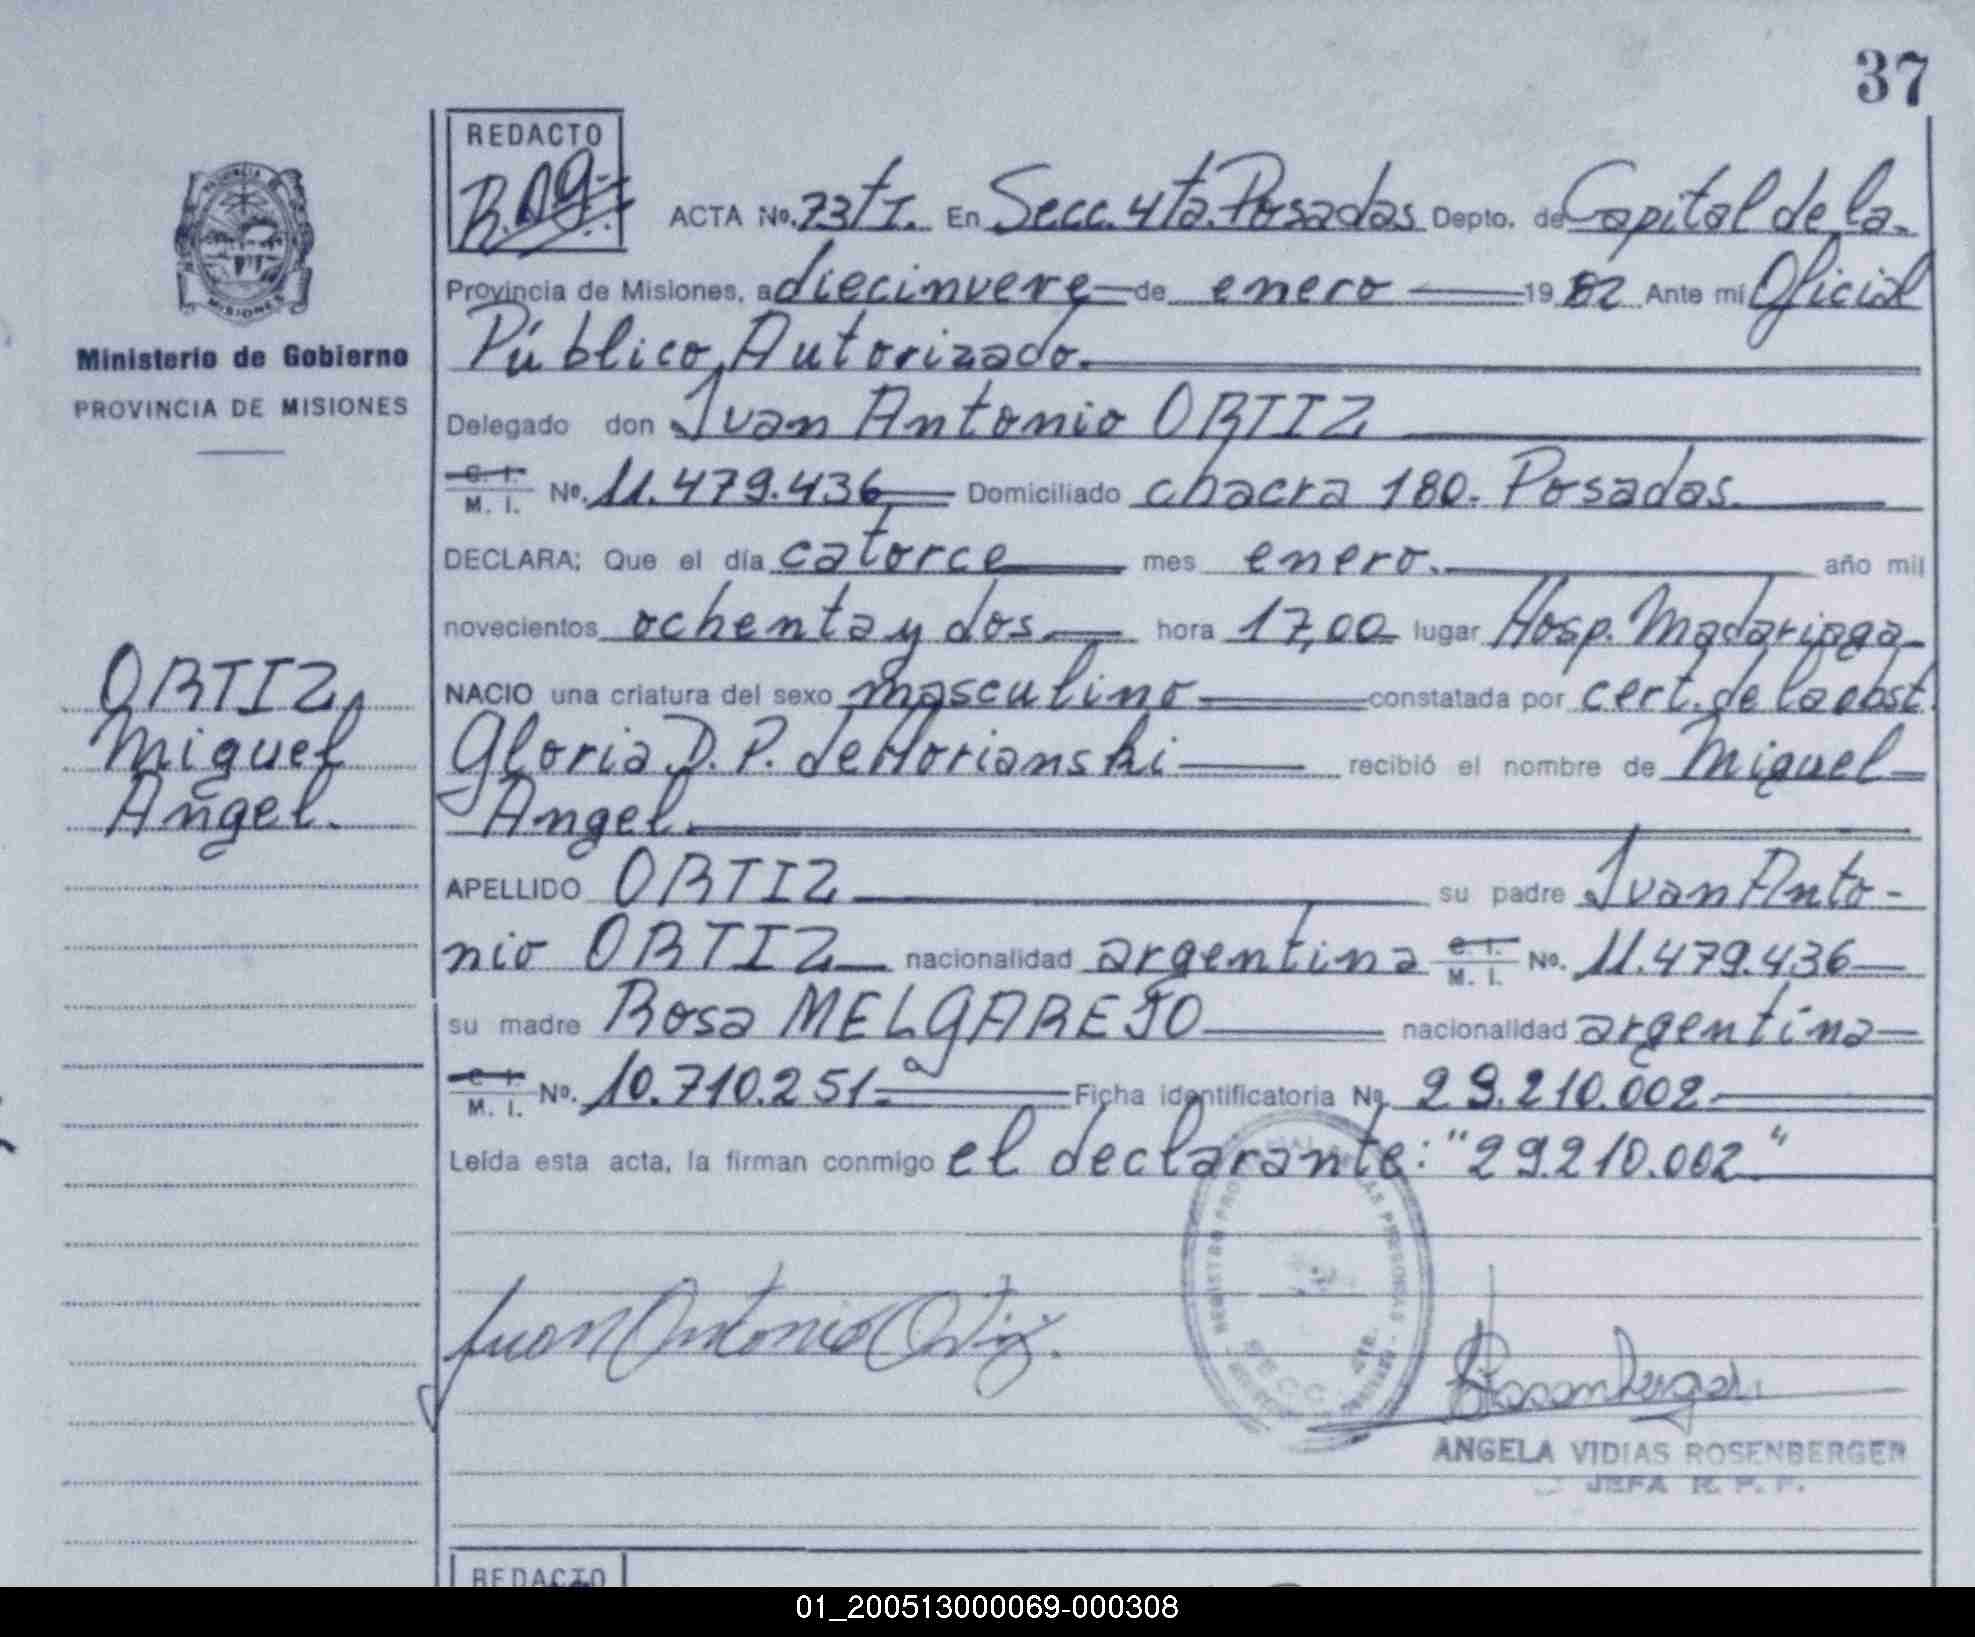 37
REDACTO
PROVINCIA DE
MISIONES
Ministerio de Gobierno
PROVINCIA DE MISIONES
ORTIZ,
Miguel
Angel.
ACTA No. 73 tI. En Secc. 4ta. Posadas Depto. de Capital de la
Provincia de Misiones, a diecinueve de enero 1982 Ante mi Oficial
Público Autorizado.
Delegado don Juan Antonio ORTIZ
C. I. / M. I. No. 11.479.436 Domiciliado chacra 180. Posadas.
DECLARA: Que el día catorce mes enero. año mil
novecientos ochenta y dos hora 17,00 lugar Hosp. Madariaga
NACIO una criatura del sexo masculino constatada por cert. de la obst.
Gloria D. P. de Horianski recibió el nombre de Miguel
Angel.
APELLIDO ORTIZ su padre Juan Anto-
nio ORTIZ nacionalidad argentina C. I. / M. I. No. 11.479.436
su madre Rosa MELGAREJO nacionalidad argentina
C. I. / M. I. No. 10.710.251. Ficha identificatoria No. 29.210.002
Leída esta acta, la firman conmigo el declarante: "29.210.002"
Juan Antonio Ortiz.
Rosenberger
ANGELA VIDIAS ROSENBERGER
JEFA R. P. P.
REDACTO
01_200513000069-000308